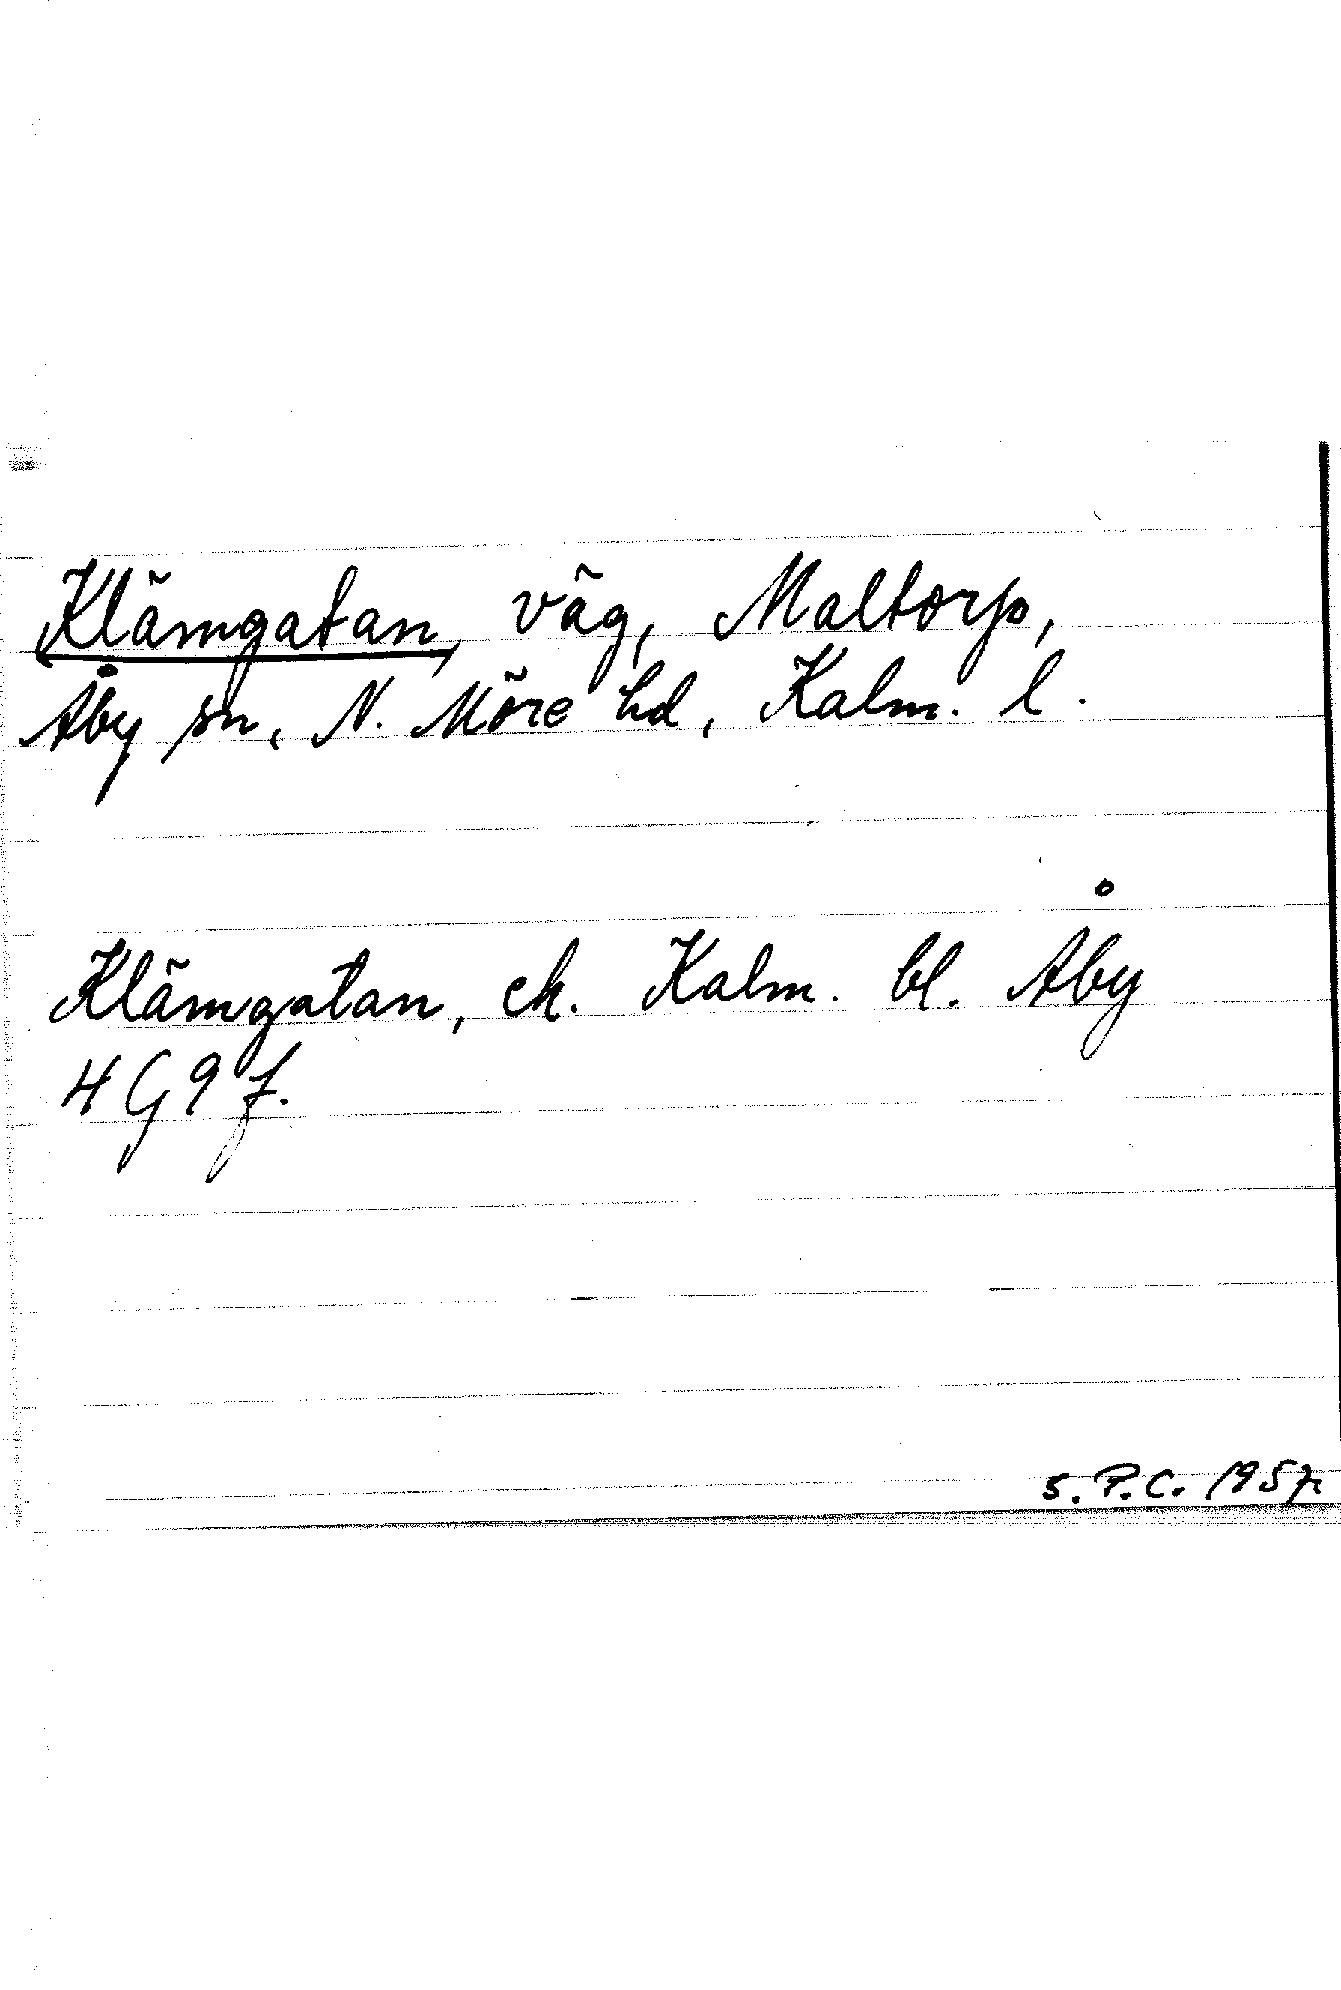 Klämgatan, väg, Maltorp,
Åby sn, N. Möre hd, Kalm. l.
Klämgatan, ek. Kalm. bl. Åby
4G9f.
S.P.C. 1957